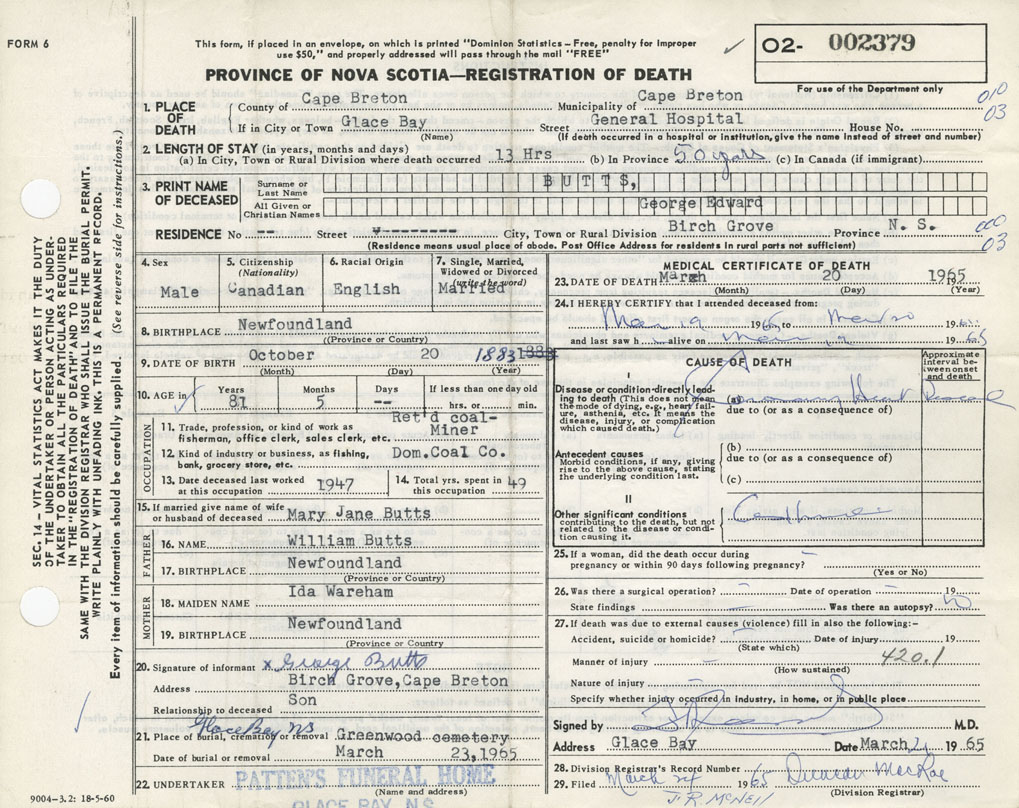 FORM 6
This form, if placed in an envelope, on which is printed "Dominion Statistics – Free, penalty for improper
use $50," and properly addressed will pass through the mail "FREE"
PROVINCE OF NOVA SCOTIA—REGISTRATION OF DEATH
O2- 002379
For use of the Department only
010
03
1. PLACE OF DEATH
County of Cape Breton Municipality of Cape Breton
If in City or Town Glace Bay Street General Hospital House No.
(Name) (If death occurred in a hospital or institution, give the name instead of street and number)
2. LENGTH OF STAY (in years, months and days)
(a) In City, Town or Rural Division where death occurred 13 Hrs (b) In Province 50 years (c) In Canada (if immigrant)
3. PRINT NAME OF DECEASED
Surname or Last Name BUTTS,
All Given or Christian Names George Edward
RESIDENCE No -- Street -------- City, Town or Rural Division Birch Grove Province N. S.
(Residence means usual place of abode. Post Office Address for residents in rural parts not sufficient)
000
03
4. Sex Male
5. Citizenship (Nationality) Canadian
6. Racial Origin English
7. Single, Married, Widowed or Divorced (write the word) Married
8. BIRTHPLACE Newfoundland
(Province or Country)
9. DATE OF BIRTH October 20 1883 1883
(Month) (Day) (Year)
10. AGE in Years 81 Months 5 Days -- If less than one day old hrs. or min.
OCCUPATION
11. Trade, profession, or kind of work as fisherman, office clerk, sales clerk, etc. Ret'd coal-Miner
12. Kind of industry or business, as fishing, bank, grocery store, etc. Dom.Coal Co.
13. Date deceased last worked at this occupation 1947
14. Total yrs. spent in this occupation 49
15. If married give name of wife or husband of deceased Mary Jane Butts
FATHER
16. NAME William Butts
17. BIRTHPLACE Newfoundland
(Province or Country)
MOTHER
18. MAIDEN NAME Ida Wareham
19. BIRTHPLACE Newfoundland
(Province or Country
20. Signature of informant x George Butts
Address Birch Grove, Cape Breton
Relationship to deceased Son
Glace Bay NS
21. Place of burial, cremation or removal Greenwood cemetery
Date of burial or removal March 23,1965
22. UNDERTAKER PATTEN'S FUNERAL HOME
(Name and address)
GLACE BAY, N.S.
9004–3.2: 18-5-60
MEDICAL CERTIFICATE OF DEATH
23. DATE OF DEATH March 20 1965
(Month) (Day) (Year)
24. I HEREBY CERTIFY that I attended deceased from:
Mar 19 1965 to 1965
and last saw h alive on 1965
CAUSE OF DEATH
Approximate interval between onset and death
I
Disease or condition directly leading to death (This does not mean the mode of dying, e.g., heart failure, asthenia, etc. It means the disease, injury, or complication which caused death.)
(a) Heart Disease
due to (or as a consequence of)
Antecedent causes
Morbid conditions, if any, giving rise to the above cause, stating the underlying condition last.
(b)
due to (or as a consequence of)
(c)
II
Other significant conditions
contributing to the death, but not related to the disease or condition causing it.
25. If a woman, did the death occur during
pregnancy or within 90 days following pregnancy? –
(Yes or No)
26. Was there a surgical operation? – Date of operation – 19
State findings – Was there an autopsy? NO
27. If death was due to external causes (violence) fill in also the following:–
Accident, suicide or homicide? – Date of injury 19
(State which)
420.1
Manner of injury –
(How sustained)
Nature of injury –
Specify whether injury occurred in industry, in home, or in public place
Signed by M.D.
Address Glace Bay Date March 21 19 65
28. Division Registrar's Record Number
29. Filed March 24 1965 Duncan MacRae
(Division Registrar)
J.R. McNeil
SEC. 14 – VITAL STATISTICS ACT MAKES IT THE DUTY
OF THE UNDERTAKER OR PERSON ACTING AS UNDER-
TAKER TO OBTAIN ALL THE PARTICULARS REQUIRED
IN THE "REGISTRATION OF DEATH" AND TO FILE THE
SAME WITH THE DIVISION REGISTRAR WHO SHALL ISSUE THE BURIAL PERMIT.
WRITE PLAINLY WITH UNFADING INK. THIS IS A PERMANENT RECORD.
Every item of information should be carefully supplied. (See reverse side for instructions.)